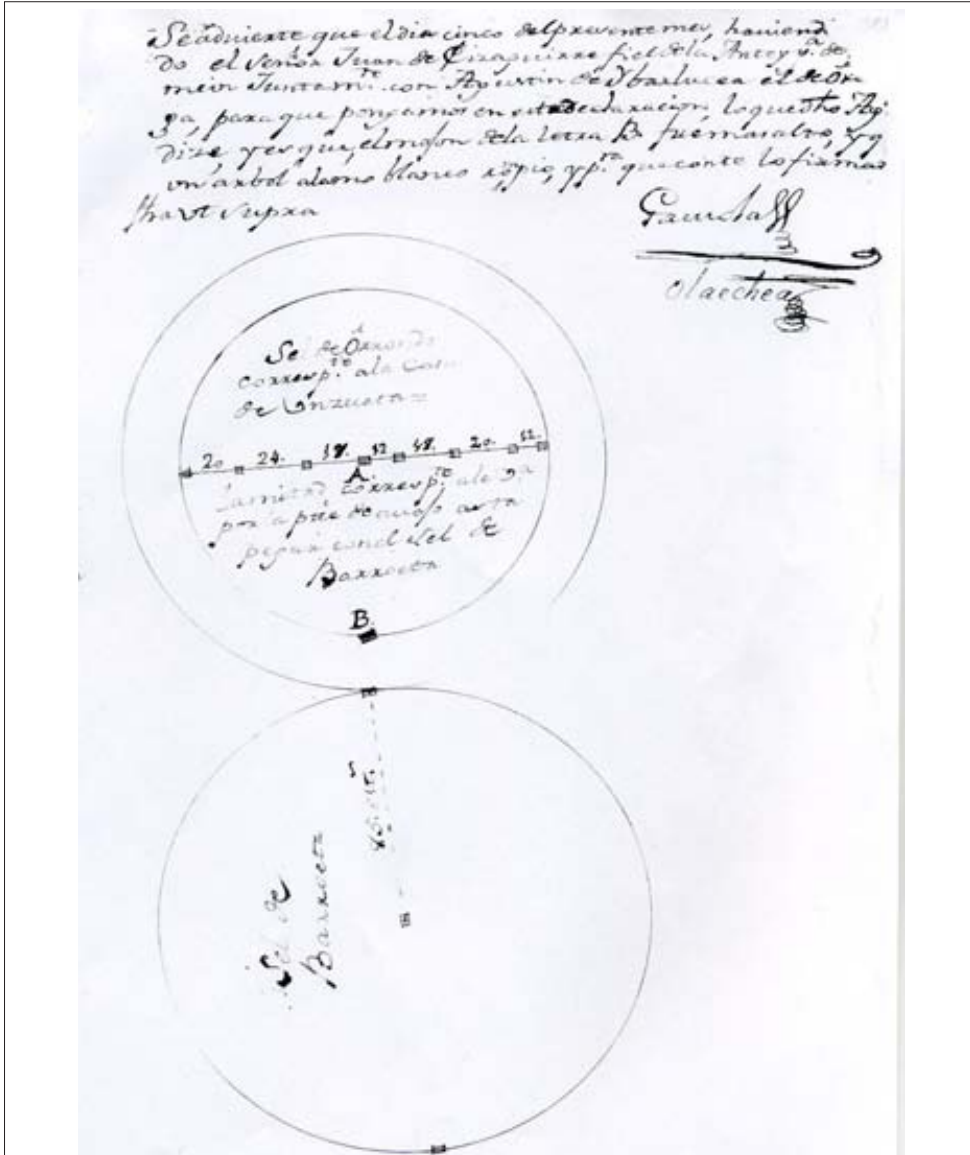 Se advierte que el dia cinco del presente mes, haviend
do el señor Juan de Eizaguirre fiel de la Antey.ª de
mein Juntam.te con Agustin de Ybarlucea el de
para que pongamos en esta declaracion, lo que dho Ag
dize, y es que, el mojon de la letra B. fue mas alto, y
un arbol alamo blanco, y p.ª que conste lo firmas
fha vt supra
Olaechea
Sel de
corresp.te a la Casa
de Vnzueta =
20 24. 18. 12 18. 20. 12.
A
La mitad corresp.te
por la p.te de avajo asta
pegar con el Sel de
Barroeta
B.
Sel de
Barroeta